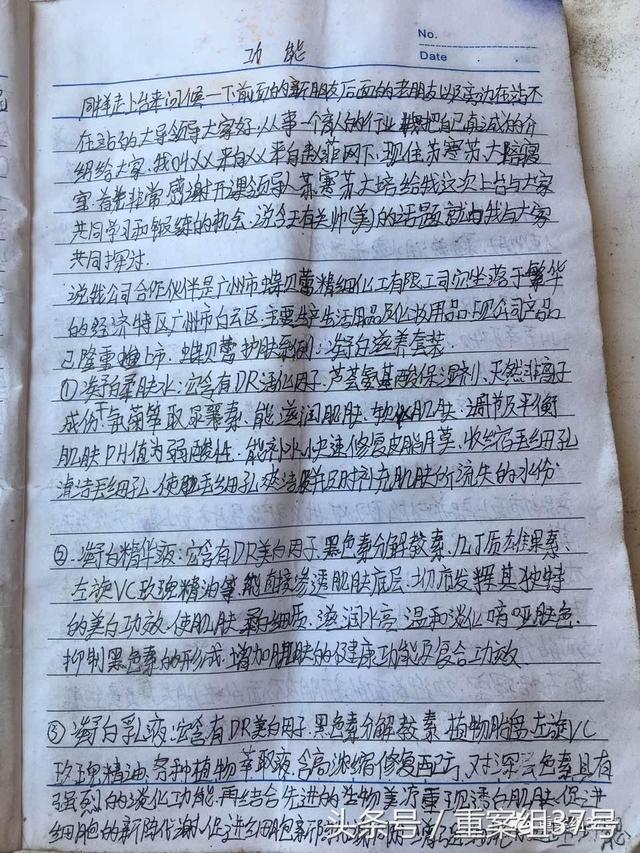 No.
Date
功 能
同样走上台来问候一下前面的新朋友后面的老朋友以及旁边在站不
在站的大导领导大家好.从事一个育人的行业 把自己真诚的介
绍给大家.我叫XX来自XX来自赵菲网下.现住苏寒苏大培寝
室.首先非常感谢开课领导人苏寒苏大培给我这次上台与大家
共同学习和锻练的机会.说今天有关帅(美)的话题就由我与大家
共同探讨.
说我公司合作伙伴是广州市蝶贝蕾精细化工有限公司它坐落于繁华
的经济特区广州市白云区.主要生产生活用品及化妆用品.现公司产品
已隆重推上市.蝶贝蕾护肤系列:海白滋养套装.
①海白柔肤水:它含有DR活化因子.芦荟氨基酸保湿剂、天然非离子
成份+氧菊萃取尿囊素.能滋润肌肤.软化肌肤.调节及平衡
肌肤PH值为弱酸性.能补水.快速修复皮脂月莫.收缩毛细孔
清洁毛细孔.使毛细孔爽洁 及时补充肌肤所流失的水份
②.海白精华液:它含有DR美白因子.黑色素分解教素.几丁质 果素、
左旋VC玫瑰精油等.能直接渗透肌肤底层.切底发挥其独特
的美白功放.使肌肤柔白细质.滋润水亮.温和淡化喑哑肤色.
抑制黑色素的形成.增加肌肤的健康功能及复合功效.
③海白乳液:它含有DR美白因子.黑色素分解教素.植物胎盘.左旋VC
玫瑰精油.各种植物萃取液.含高浓缩修复配方.对深层色素具有
强烈的淡化功能.再结合先进的生物美疗重现透白肌肤.促进
细胞的新陈代谢.促进细胞新
头条号/重案组37号